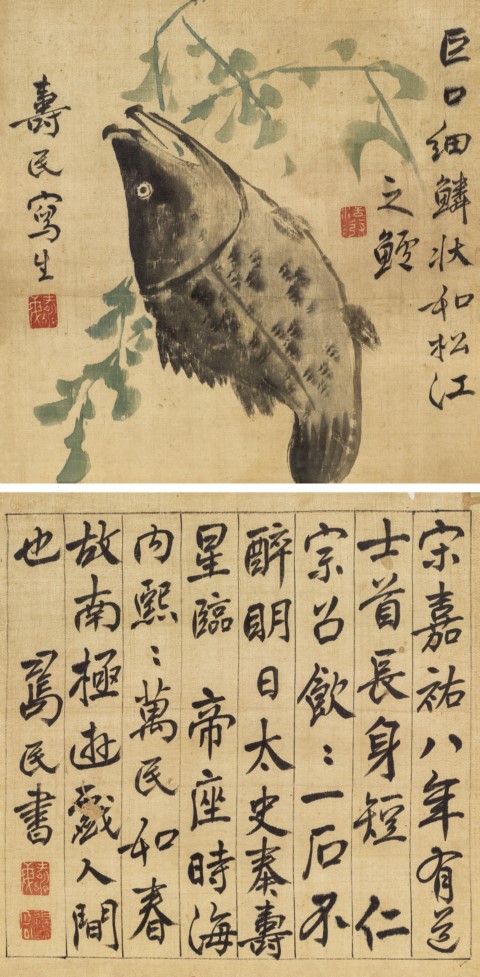 巨口細鱗狀和松江
之鱸
壽民寫生
宋嘉祐八年有道
士首長身短仁
宗召飲〻一石不
醉明日太史奏壽
星臨 帝座時海
內熙〻萬民和春
故南極遊戲人間
也 民書